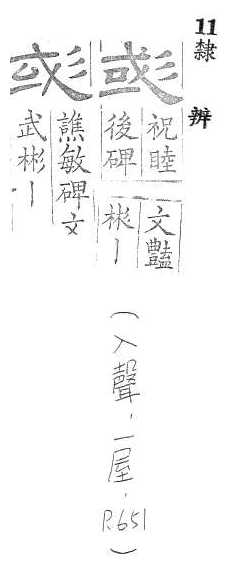 11 隸辨
彧
祝睦
後碑
文豔
彬丨
彧
譙敏碑文
武彬丨
(入聲，一屋，P.651)